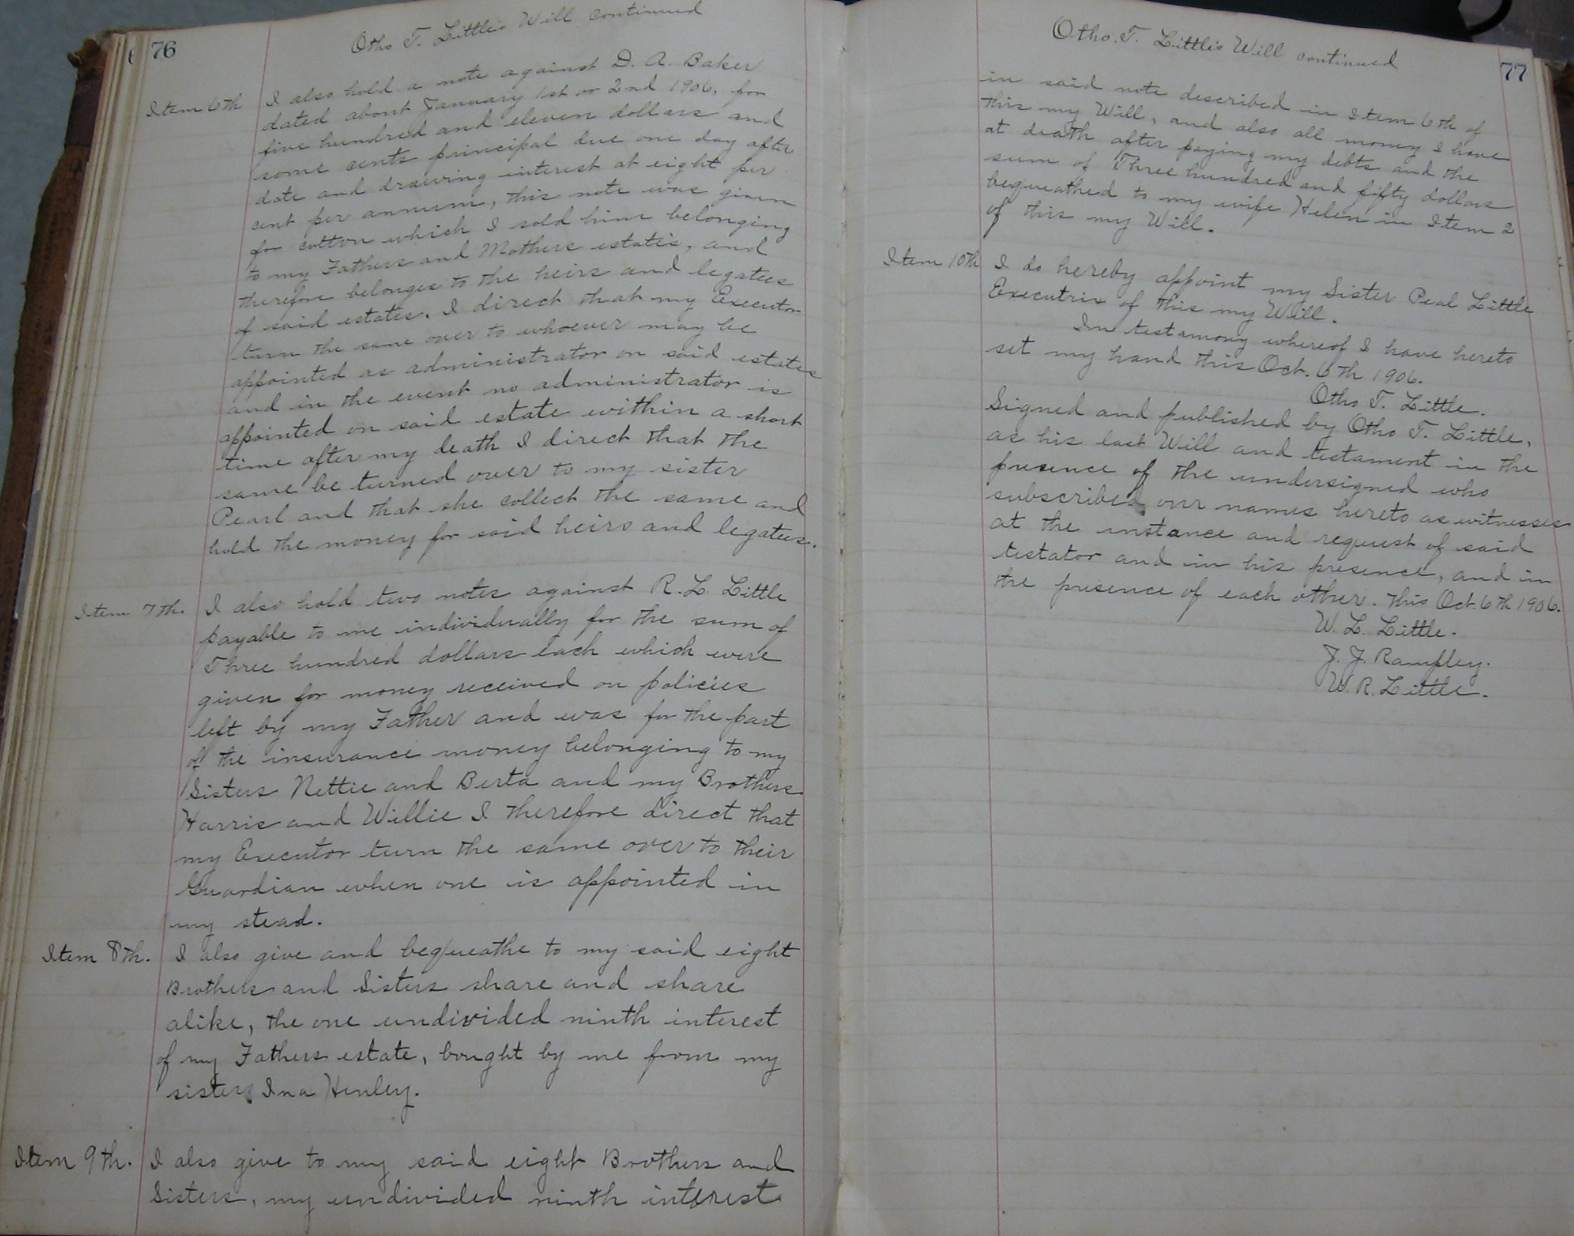 76
Otho T. Little's Will continued
Item 6th I also hold a note against D. A. Baker
dated about January 1st or 2nd 1906, for
five hundred and eleven dollars and
some cents principal due one day after
date and drawing interest at eight per
cent per annum, this note was given
for cotton which I sold him belonging
to my Fathers and Mothers estates, and
therefore belongs to the heirs and legatees
of said estates. I direct that my Executor
turn the same over to whoever may be
appointed as administrator on said estates
and in the event no administrator is
appointed on said estate within a short
time after my death I direct that the
same be turned over to my sister
Pearl and that she collect the same and
hold the money for said heirs and legatees.
Item 7th. I also hold two notes against R. L. Little
payable to me individually for the sum of
Three hundred dollars each which were
given for money received on policies
left by my Father and was for the part
of the insurance money belonging to my
Sisters Nettie and Berta and my Brothers
Harris and Willie I therefore direct that
my Executor turn the same over to their
Guardian when one is appointed in
my stead.
Item 8th. I also give and beqeathe to my said eight
Brothers and Sisters share and share
alike, the one undivided ninth interest
of my Fathers estate, bought by me from my
sister, Ina Henley.
Item 9th. I also give to my said eight Brothers and
Sisters, my undivided ninth interest
Otho. T. Little's Will continued
77
in said note described in Item 6th of
this my Will, and also all money I have
at death after paying my debts and the
sum of Three hundred and fifty dollars
bequeathed to my wife Helen in Item 2
of this my Will.
Item 10th I do hereby appoint my Sister Peal Little
Executrix of this my Will.
In testamony whereof I have hereto
set my hand this Oct. 6th 1906.
Otho T. Little.
Signed and published by Otho T. Little,
as his last Will and testament in the
presence of the undersigned who
subscribed our names hereto as witnesses
at the instance and request of said
testator and in his presence, and in
the presence of each other. this Oct 6th 1906.
W. L. Little.
J. J. Rampley.
W. R. Little.